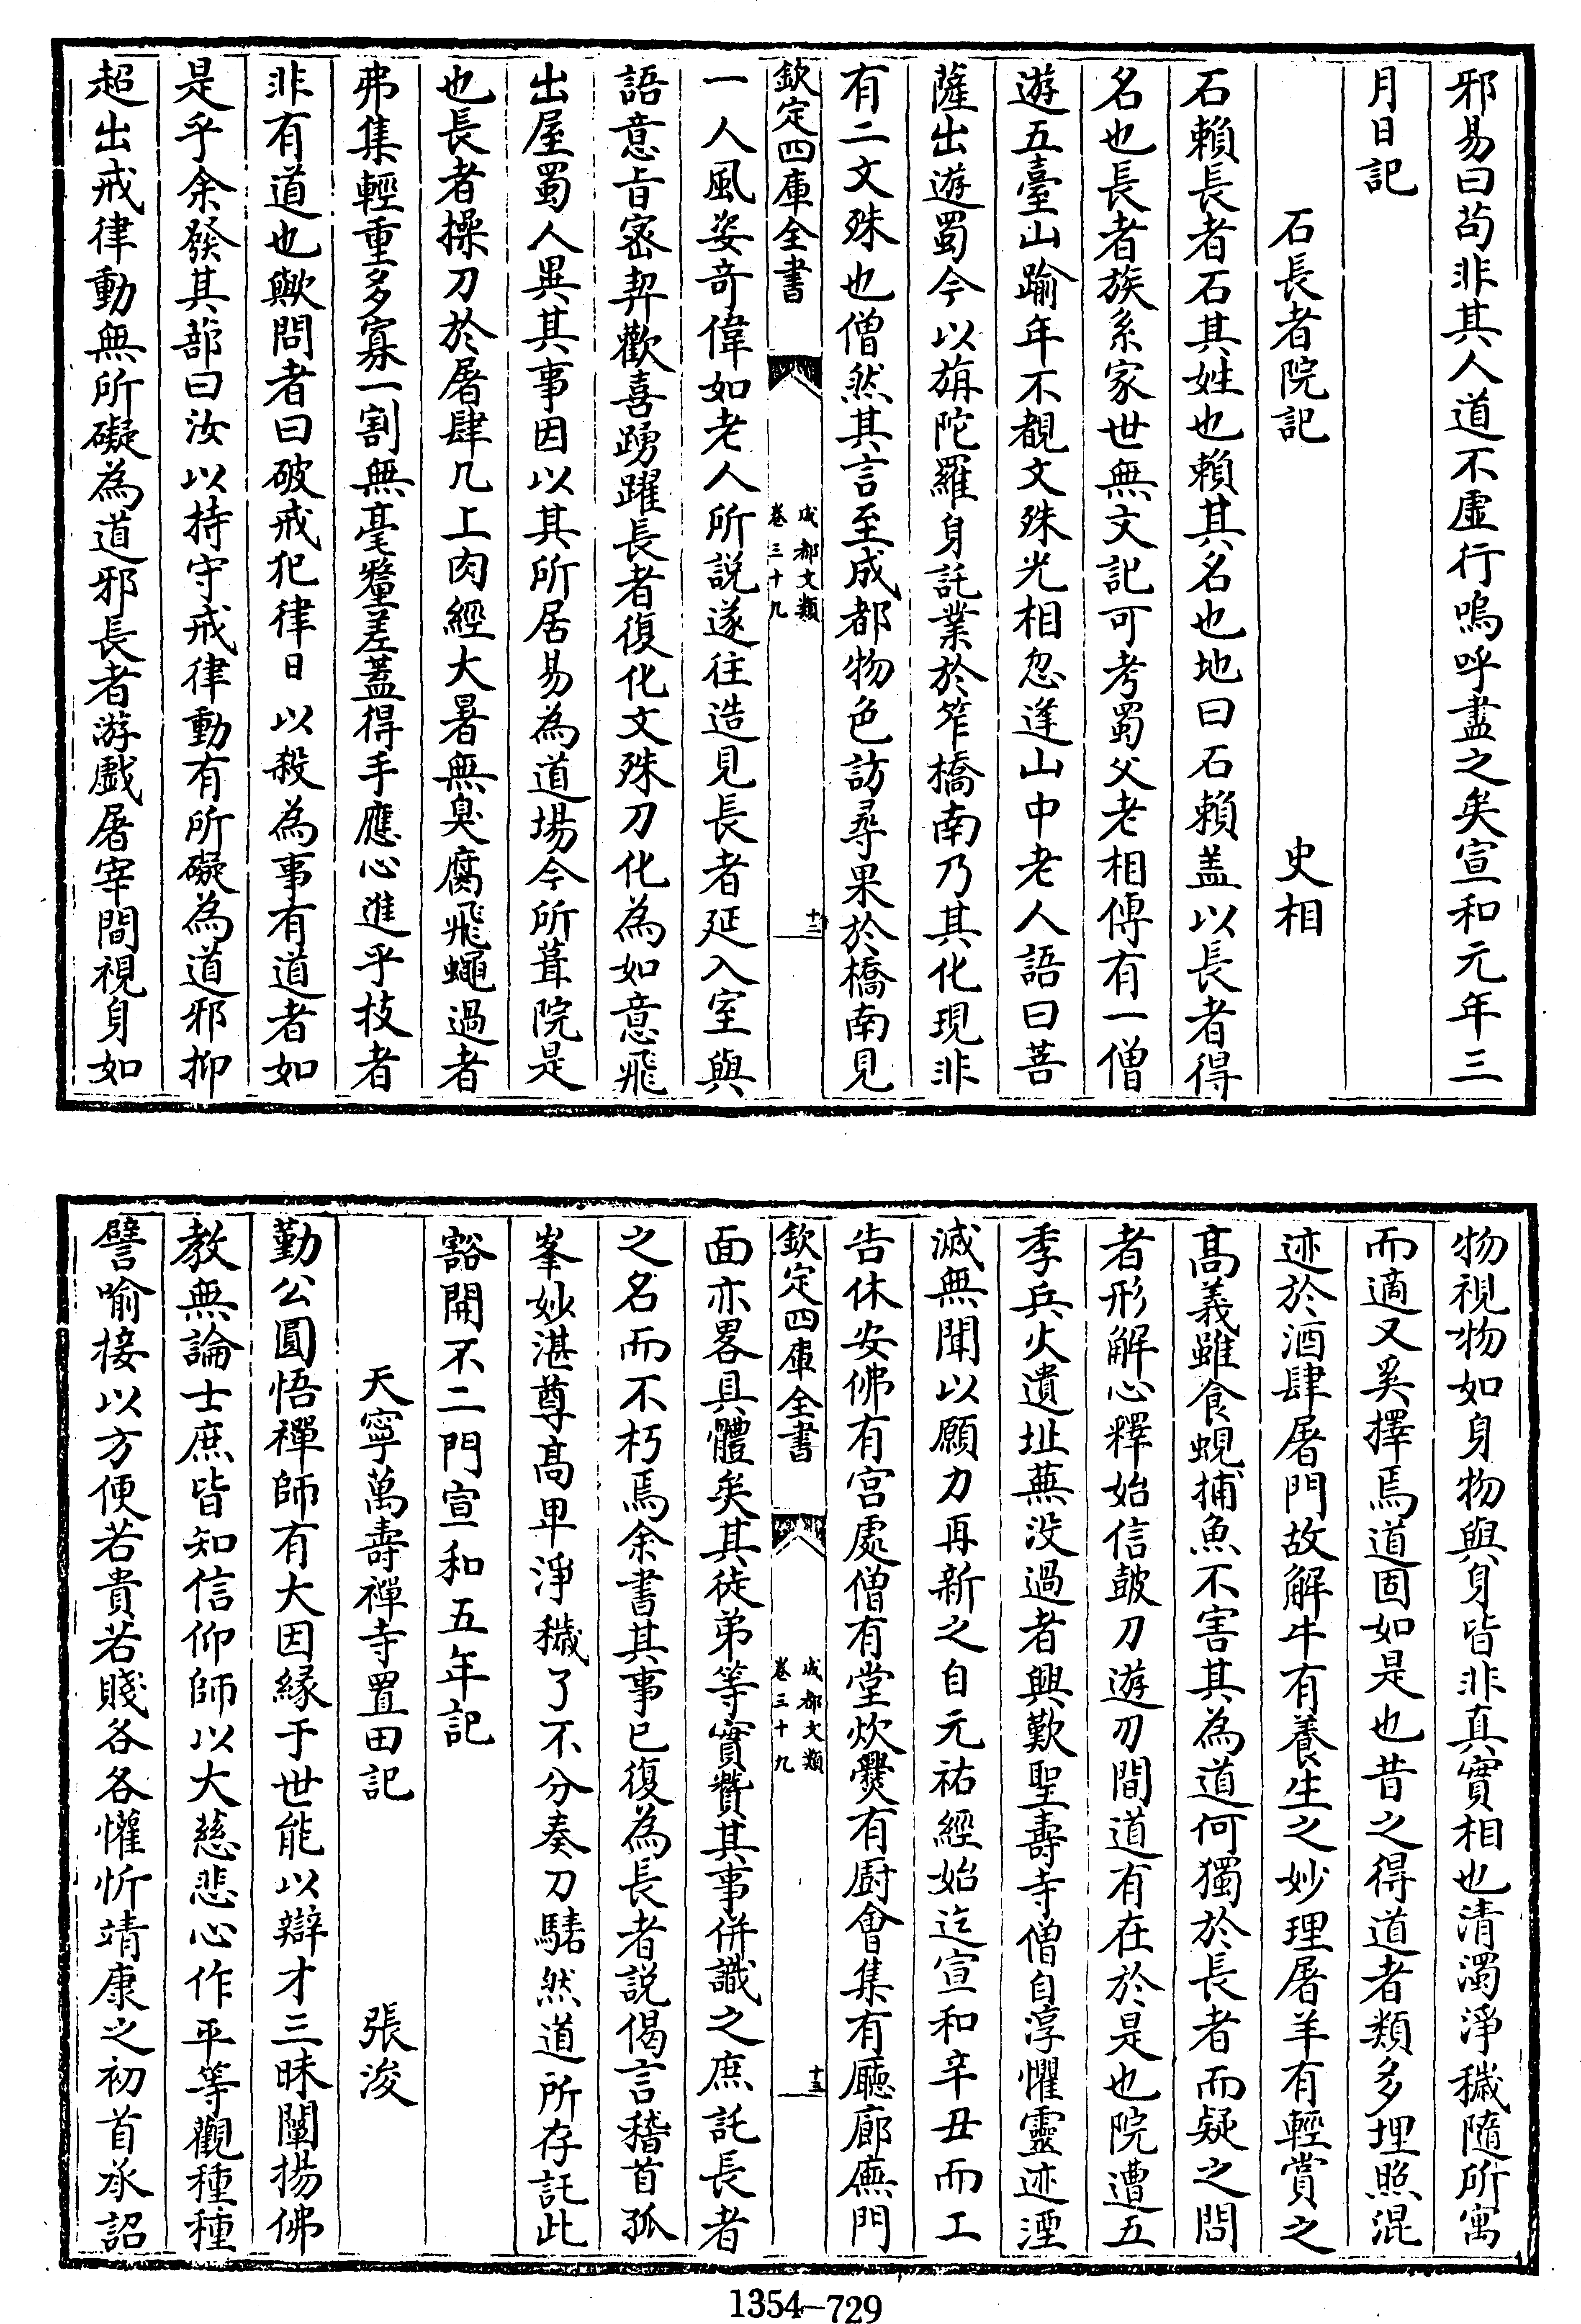 邪易曰苟非其人道不虛行嗚呼盡之矣宣和元年三
月日記
石長者院記 史相
石賴長者石其姓也賴其名也地曰石賴盖以長者得
名也長者族系家世無文記可考蜀父老相傳有一僧
遊五臺山踰年不覩文殊光相忽逢山中老人語曰菩
薩出遊蜀今以旃陀羅身託業於笮橋南乃其化現非
有二文殊也僧然其言至成都物色訪尋果於橋南見
欽定四庫全書 成都文類 卷三十九 十三
一人風姿奇偉如老人所說遂往造見長者延入室與
語意旨宻契歡喜踴躍長者復化文殊刀化為如意飛
出屋蜀人異其事因以其所居易為道場今所葺院是
也長者操刀於屠肆几上肉經大暑無臭腐飛蠅過者
弗集輕重多寡一割無毫釐差蓋得手應心進乎技者
非有道也歟問者曰破戒犯律日以殺為事有道者如
是乎余發其蔀曰汝以持守戒律動有所礙為道邪抑
超出戒律動無所礙為道邪長者游戲屠宰間視身如
物視物如身物與身皆非真實相也清濁淨穢隨所寓
而適又奚擇焉道固如是也昔之得道者類多埋照混
迹於酒肆屠門故解牛有養生之妙理屠羊有輕賞之
高義雖食蜆捕魚不害其為道何獨於長者而疑之問
者形解心釋始信皷刀遊刃間道有在於是也院遭五
季兵火遺址蕪没過者興歎聖壽寺僧自淳懼靈迹湮
滅無聞以願力再新之自元祐經始迄宣和辛丑而工
告休安佛有宫處僧有堂炊爨有厨會集有廳廊廡門
欽定四庫全書 成都文類 卷三十九 十三
面亦畧具體矣其徒弟等實贊其事併識之庶託長者
之名而不朽焉余書其事已復為長者説偈言稽首孤
峯妙湛尊高卑淨穢了不分奏刀騞然道所存託此
豁開不二門宣和五年記
天寧萬壽禪寺置田記 張浚
勤公圓悟禪師有大因縁于世能以辯才三昧闡揚佛
教無論士庶皆知信仰師以大慈悲心作平等觀種種
譬喻接以方便若貴若賤各各懽忻靖康之初首承詔
1354-729